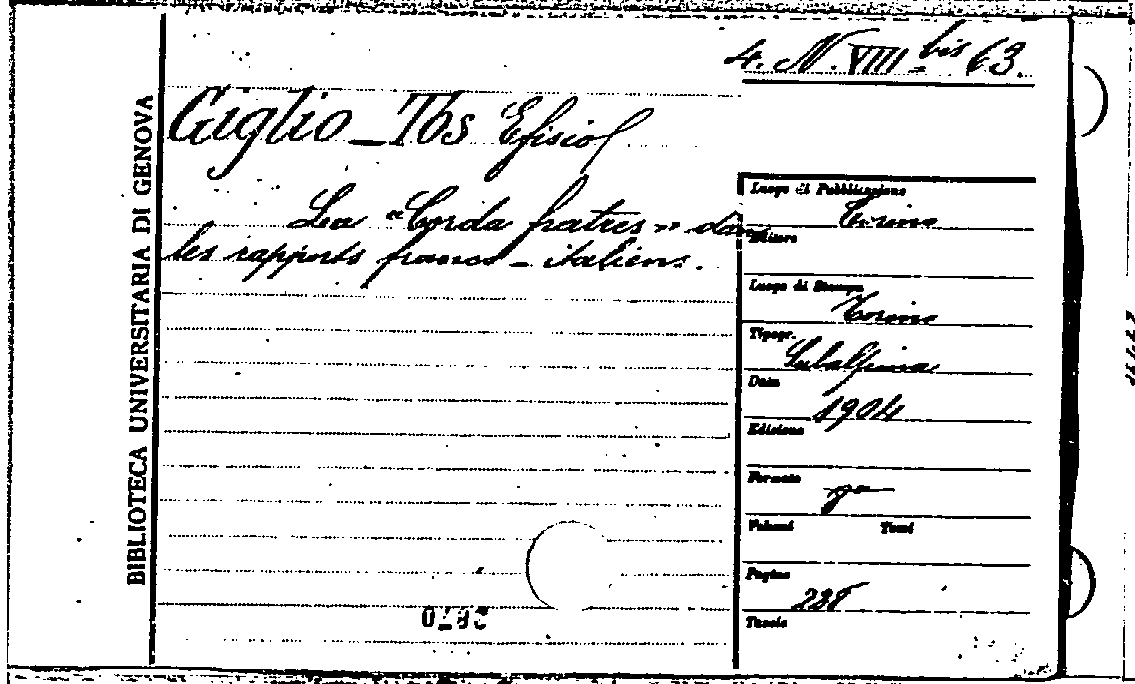 4. N. VIII bis 63.
Giglio - Tos Efisio
La "Corda fratres" dans
les rapports franco - italiens.
BIBLIOTECA UNIVERSITARIA DI GENOVA
Luogo di Pubblicazione
Torino
Editore
Luogo di Stampa
Torino
Tipogr.
Subalpina
Data
1904
Edizione
Formato
8º
Volumi Tomi
Pagine
238
Tavole